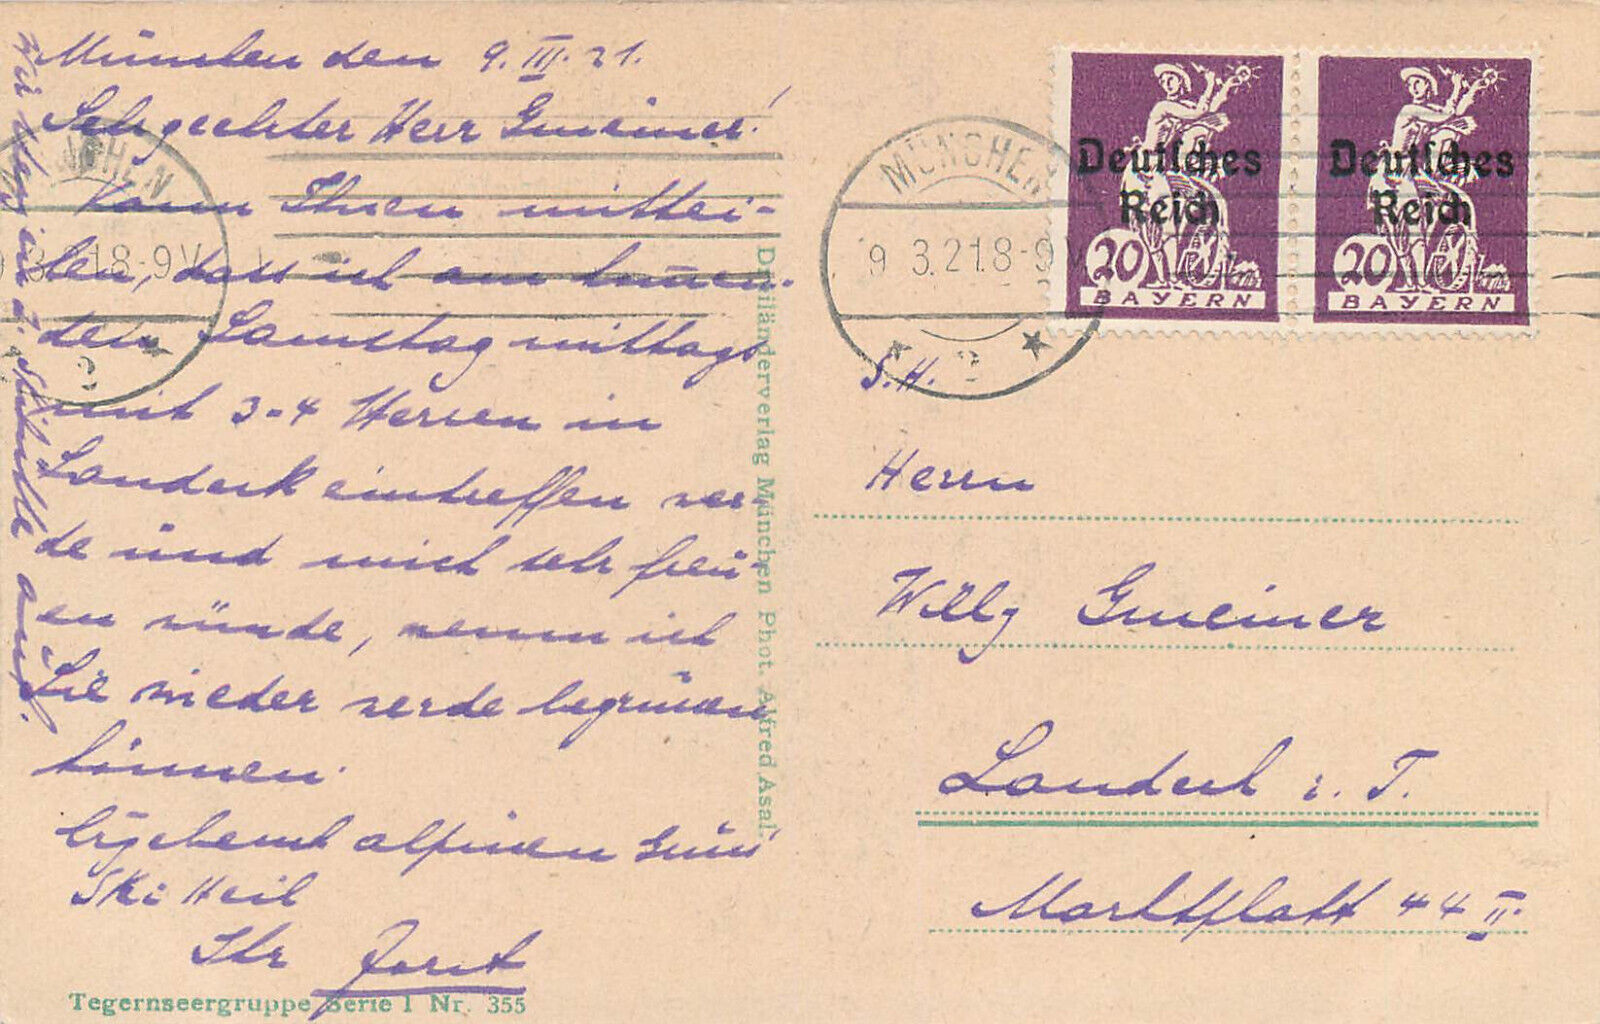 München den 9. III. 21.
Sehrgeehrter Herr Gmeiner!
Kann Ihnen mittei-
len, dass ich am kommen-
den Samstag mittags
mit 3-4 Herren in
Landeck eintreffen wer-
de und mich sehr freu-
en würde, wenn ich
Sie wieder werde begrüssen
können.
Ergebenst alpinen Gruss
Ski Heil
Ihr
Wir
aus.
Tegernseergruppe Serie I Nr. 355
Dreiländerverlag München Phot. Alfred Asal.
MÜNCHEN
9 3.21.8-9V
2
MÜNCHEN
9 3.21.8-9V
2
Deutsches
Reich
20
BAYERN
Deutsches
Reich
20
BAYERN
S.H.
Herrn
Willy Gmeiner
Landeck i. T.
Marktplatz 44 II.